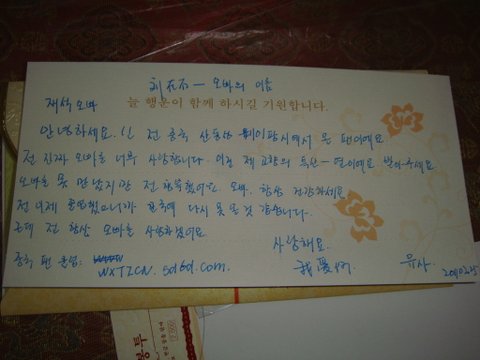 刘在石 — 오빠의 이름
재석오빠
늘 행운이 함께 하시길 기원합니다.
안녕하세요. 전 중국 산동성 웨이팡시에서 온 팬이예요
전 진짜 오빠를 너무 사랑합니다. 이건 제 고향의 특산 - 연이예요 받아주세요
오빠를 못 만났지만 전 만족했어요 오빠. 항상 건강하세요
전 이제 졸업했으니까 한국에 다시 못 올 것 같습니다.
근데 전 항상 오빠를 사랑하겠어요
사랑해요.
중국 팬클럽: WXTZCN.sd6d.com.
我爱你 유사.